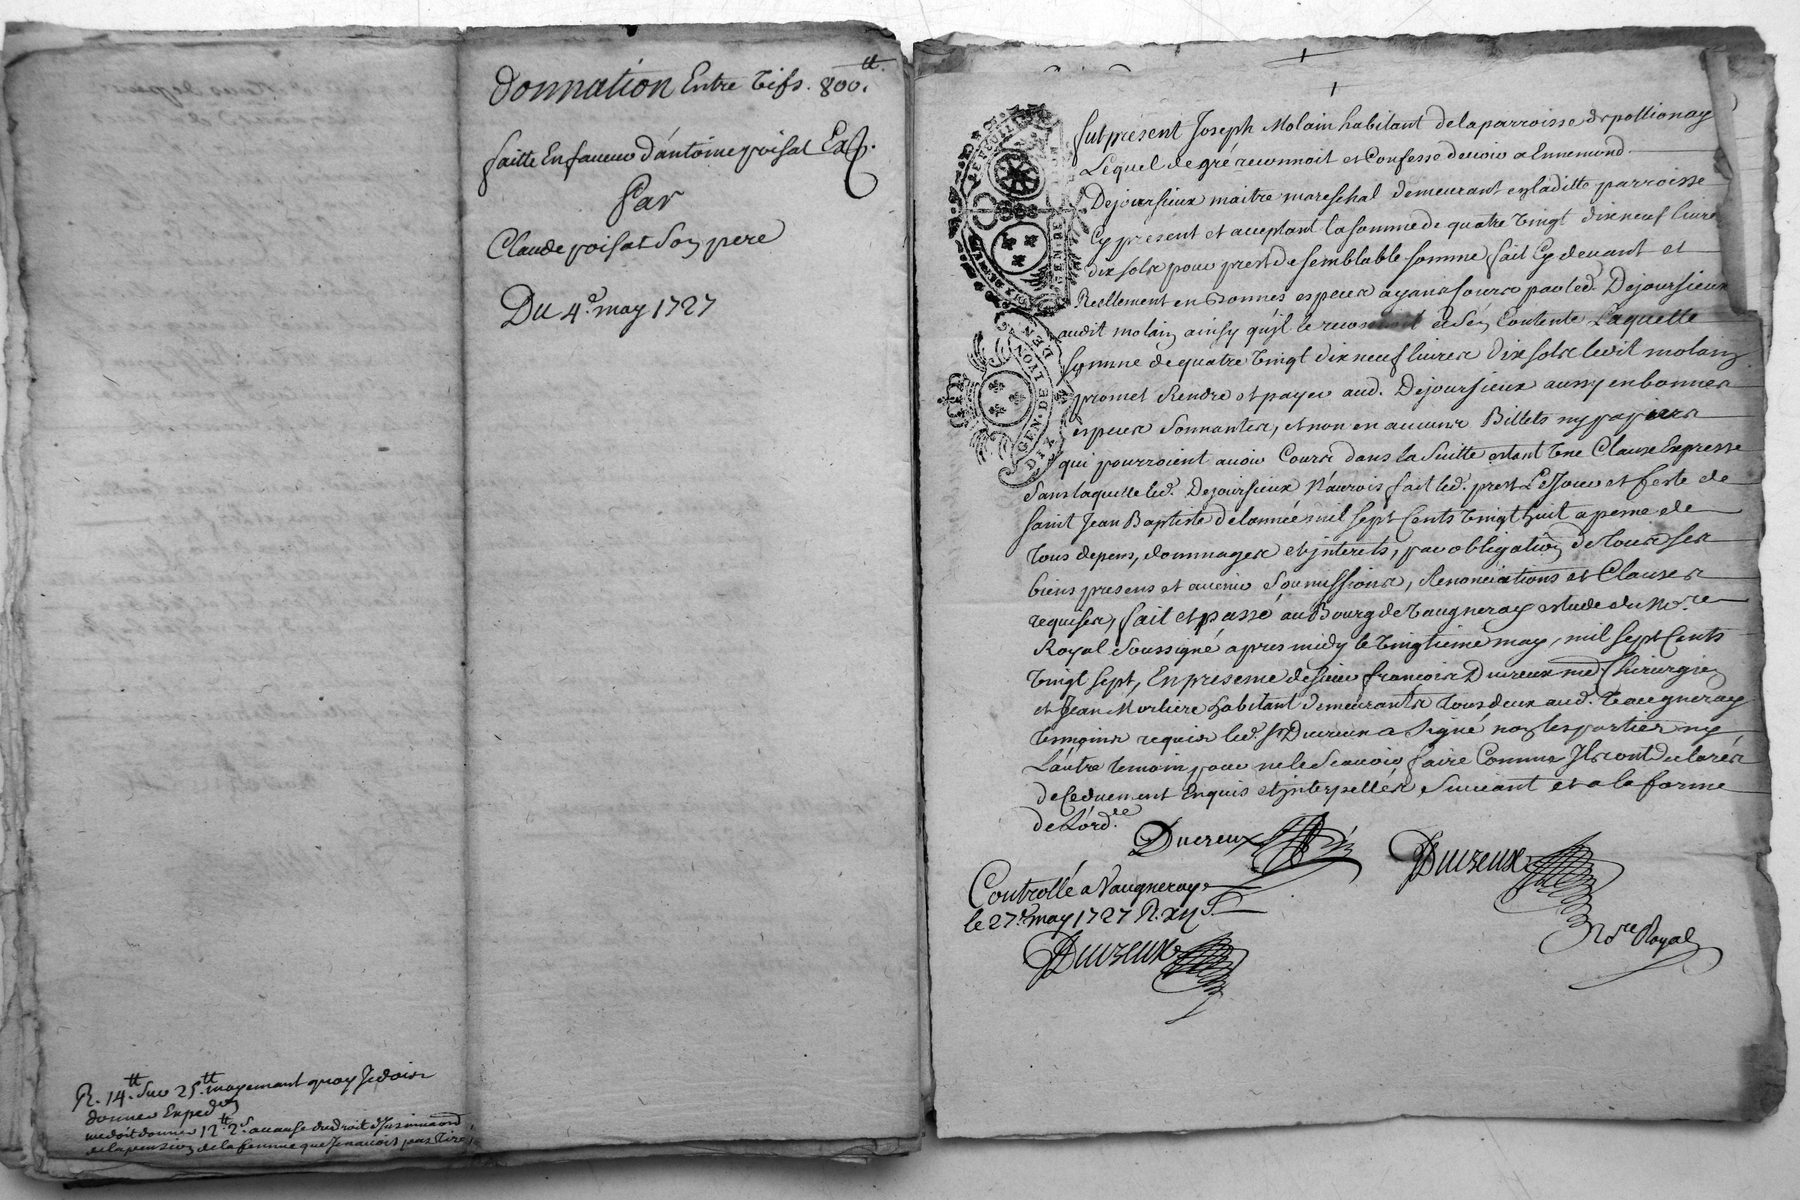 Donnation Entre vifs. 800.tt
faitte En faveur d'antoine poisat Exp.
Par
Claude poisat Son pere
Du 4e may 1727
R. 14tt Sur 25tt moyennant quoy Je dois
donner Expedon
me doit donner 12tt 2s a cause du droit d'Insinuaon
et la pension de la femme que Je n'avois pas tire
fut présent Joseph Molain habitant de la parroisse de pollionay
Lequel de gré reconnoit et Confesse devoir a Ennemond
Dejoursieux maitre mareschal demeurant en laditte parroisse
Cy present et acceptant la somme de quatre vingt dix neuf livres
dix sols pour prest de semblable somme fait Cy devant et
Reellement en bonnes especes ayans cours par led. Dejoursieux
audit molain ainsy qu'il le reconnoit et s'en Contente Laquelle
somme de quatre vingt dix neuf livres dix sols ledit molain
promet Rendre et payer aud. Dejoursieux aussy en bonnes
especes Sonnantes, et non en aucuns Billets ny papiers
qui pourroient avoir Cours dans la Suitte estant une Clause Expresse
Sans laquelle led. Dejoursieux N'auroit fait led. prest Le Jour et feste de
saint Jean Baptiste de lannée mil sept Cents vingt huit a peine de
tous depens, dommages et jnterets, par obligation de tous ses
biens presens et avenir Soumissions, Renonciations et Clauses
requises, fait et passé au Bourg de Vaugneray estude du Nore
Royal Soussigné apres midy le vingtieme may, mil sept Cents
vingt sept, En presence de sieur francois Ducreux me Chirurgien
et Jean Morliere habitant demeurants tous deux aud. Vaugneray
temoins requis led. sr Ducreux a Signé non les parties ny
L'autre temoin pour ne le Scavoir faire Comme Ils ont declarés
de Ce duement Enquis et jnterpellés Suivant et a la forme
de L'ordce
Ducreux
Ducreux
Nore Royal
Controllé a Vaugneray
le 27e may 1727 R. xij s
Ducreux
GEN. DE LYON
DIX DEN